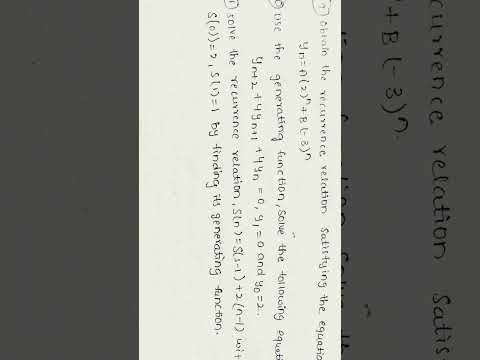 obtain the recurrence relation satisfying the equatio
yn = A(2)^n + B(-3)^n
use the generating function, solve the following equati
yn+2 + 4yn+1 + 4yn = 0, y1 = 0 and y0 = 2.
solve the recurrence relation, S(n) = S(s-1) + 2(n-1) wit
S(0) = 2, S(1) = 1 by finding its generating function.
currence relation satis
+ B(-3)^n.